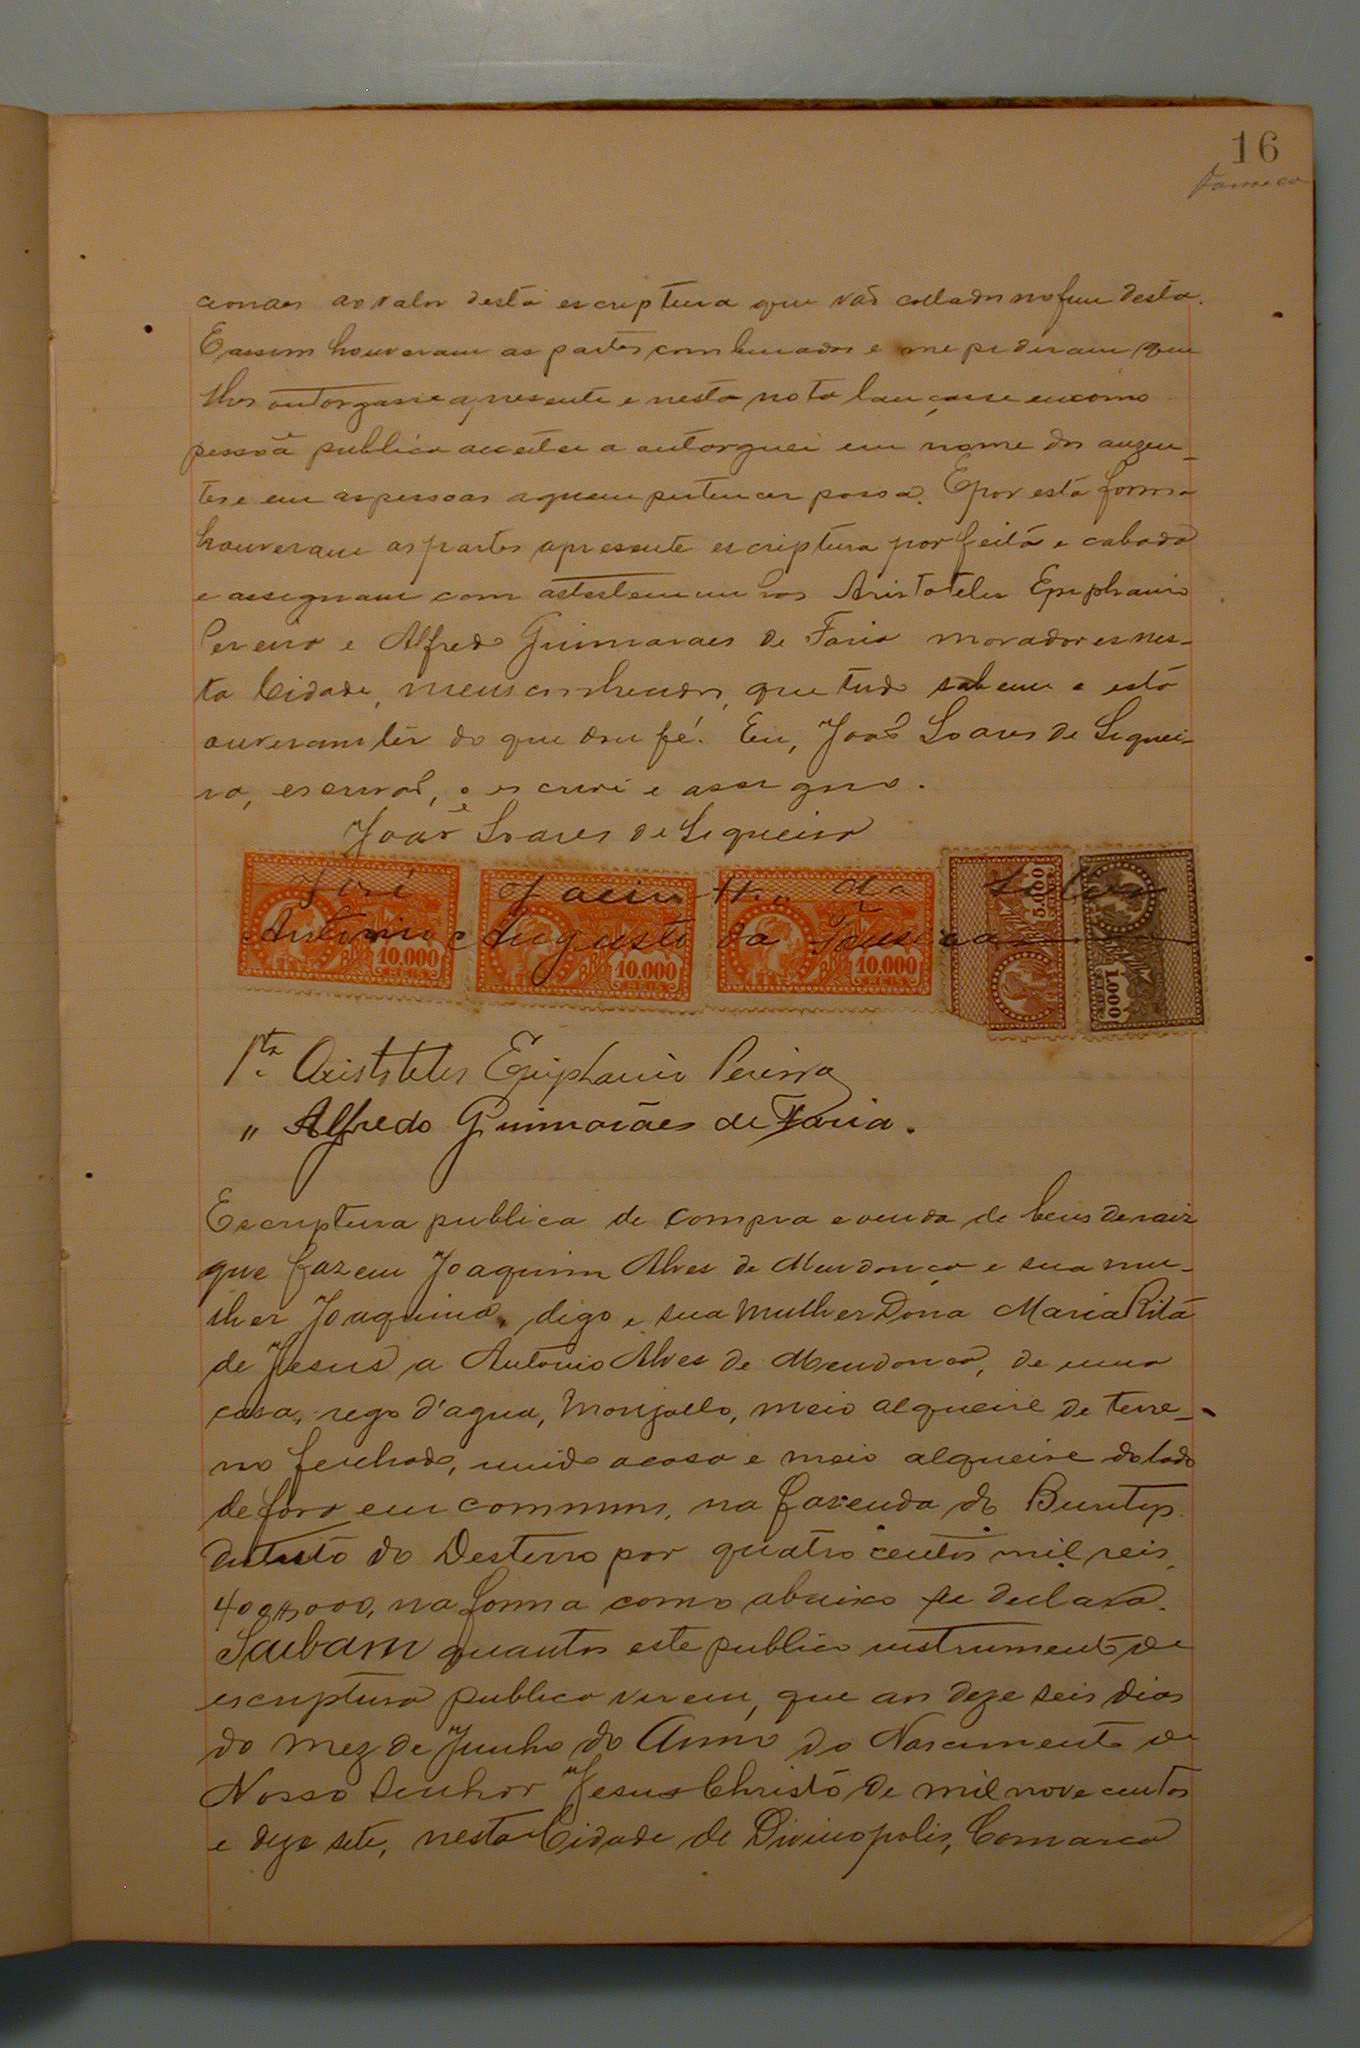 16
cionaes ao valor desta escriptura que vão collados no fim desta.
E assim houveram as partes combinados e me pediram que
lhes outorgasse a presente e nesta nota lançasse eu como
pessoa publica acceitei a outorguei em nome dos auzen-
tes e em as pessoas a quem pertencer possa. E por esta forma
houveram as partes a presente escriptura por feita e cabada
e assignam com as testemunhas Aristoteles Epiphanio
Pereira e Alfredo Guimaraes de Faria moradores nes-
ta Cidade, meus conhecidos, que tudo sabem e esta
ouveram lêr do que dou fé. Eu, João Soares de Siquei-
ra, escrivão, o escrevi e assigno.
João Soares de Siqueira
José Jacintho da Silva
Antonio Augusto da
10.000 REIS
10.000 REIS
10.000 REIS
5.000
1.000
1ª. Aristoteles Epiphanio Pereira
" Alfredo Guimarães de Faria.
Escriptura publica de compra e venda de bens de raiz
que fazem Joaquim Alves de Mendonça e sua mu-
lher Joaquina, digo e sua mulher Dona Maria Rita
de Jesus a Antonio Alves de Mendonça, de uma
casa, rego d'agua, monjollo, meio alqueire de terre-
no fechado, unido a casa e meio alqueire do lado
de fora em commum, na fazenda do Buritys
districto do Desterro por quatro centos mil reis,
400$000, na forma como abaixo se declara.
Saibam quantos este publico instrumento de
escriptura publica virem, que aos deze seis dias
do mez de Junho do Anno do Nascimento de
Nosso Senhor Jesus Christo de mil nove centos
e deze sete, nesta Cidade de Divinopolis, Comarca